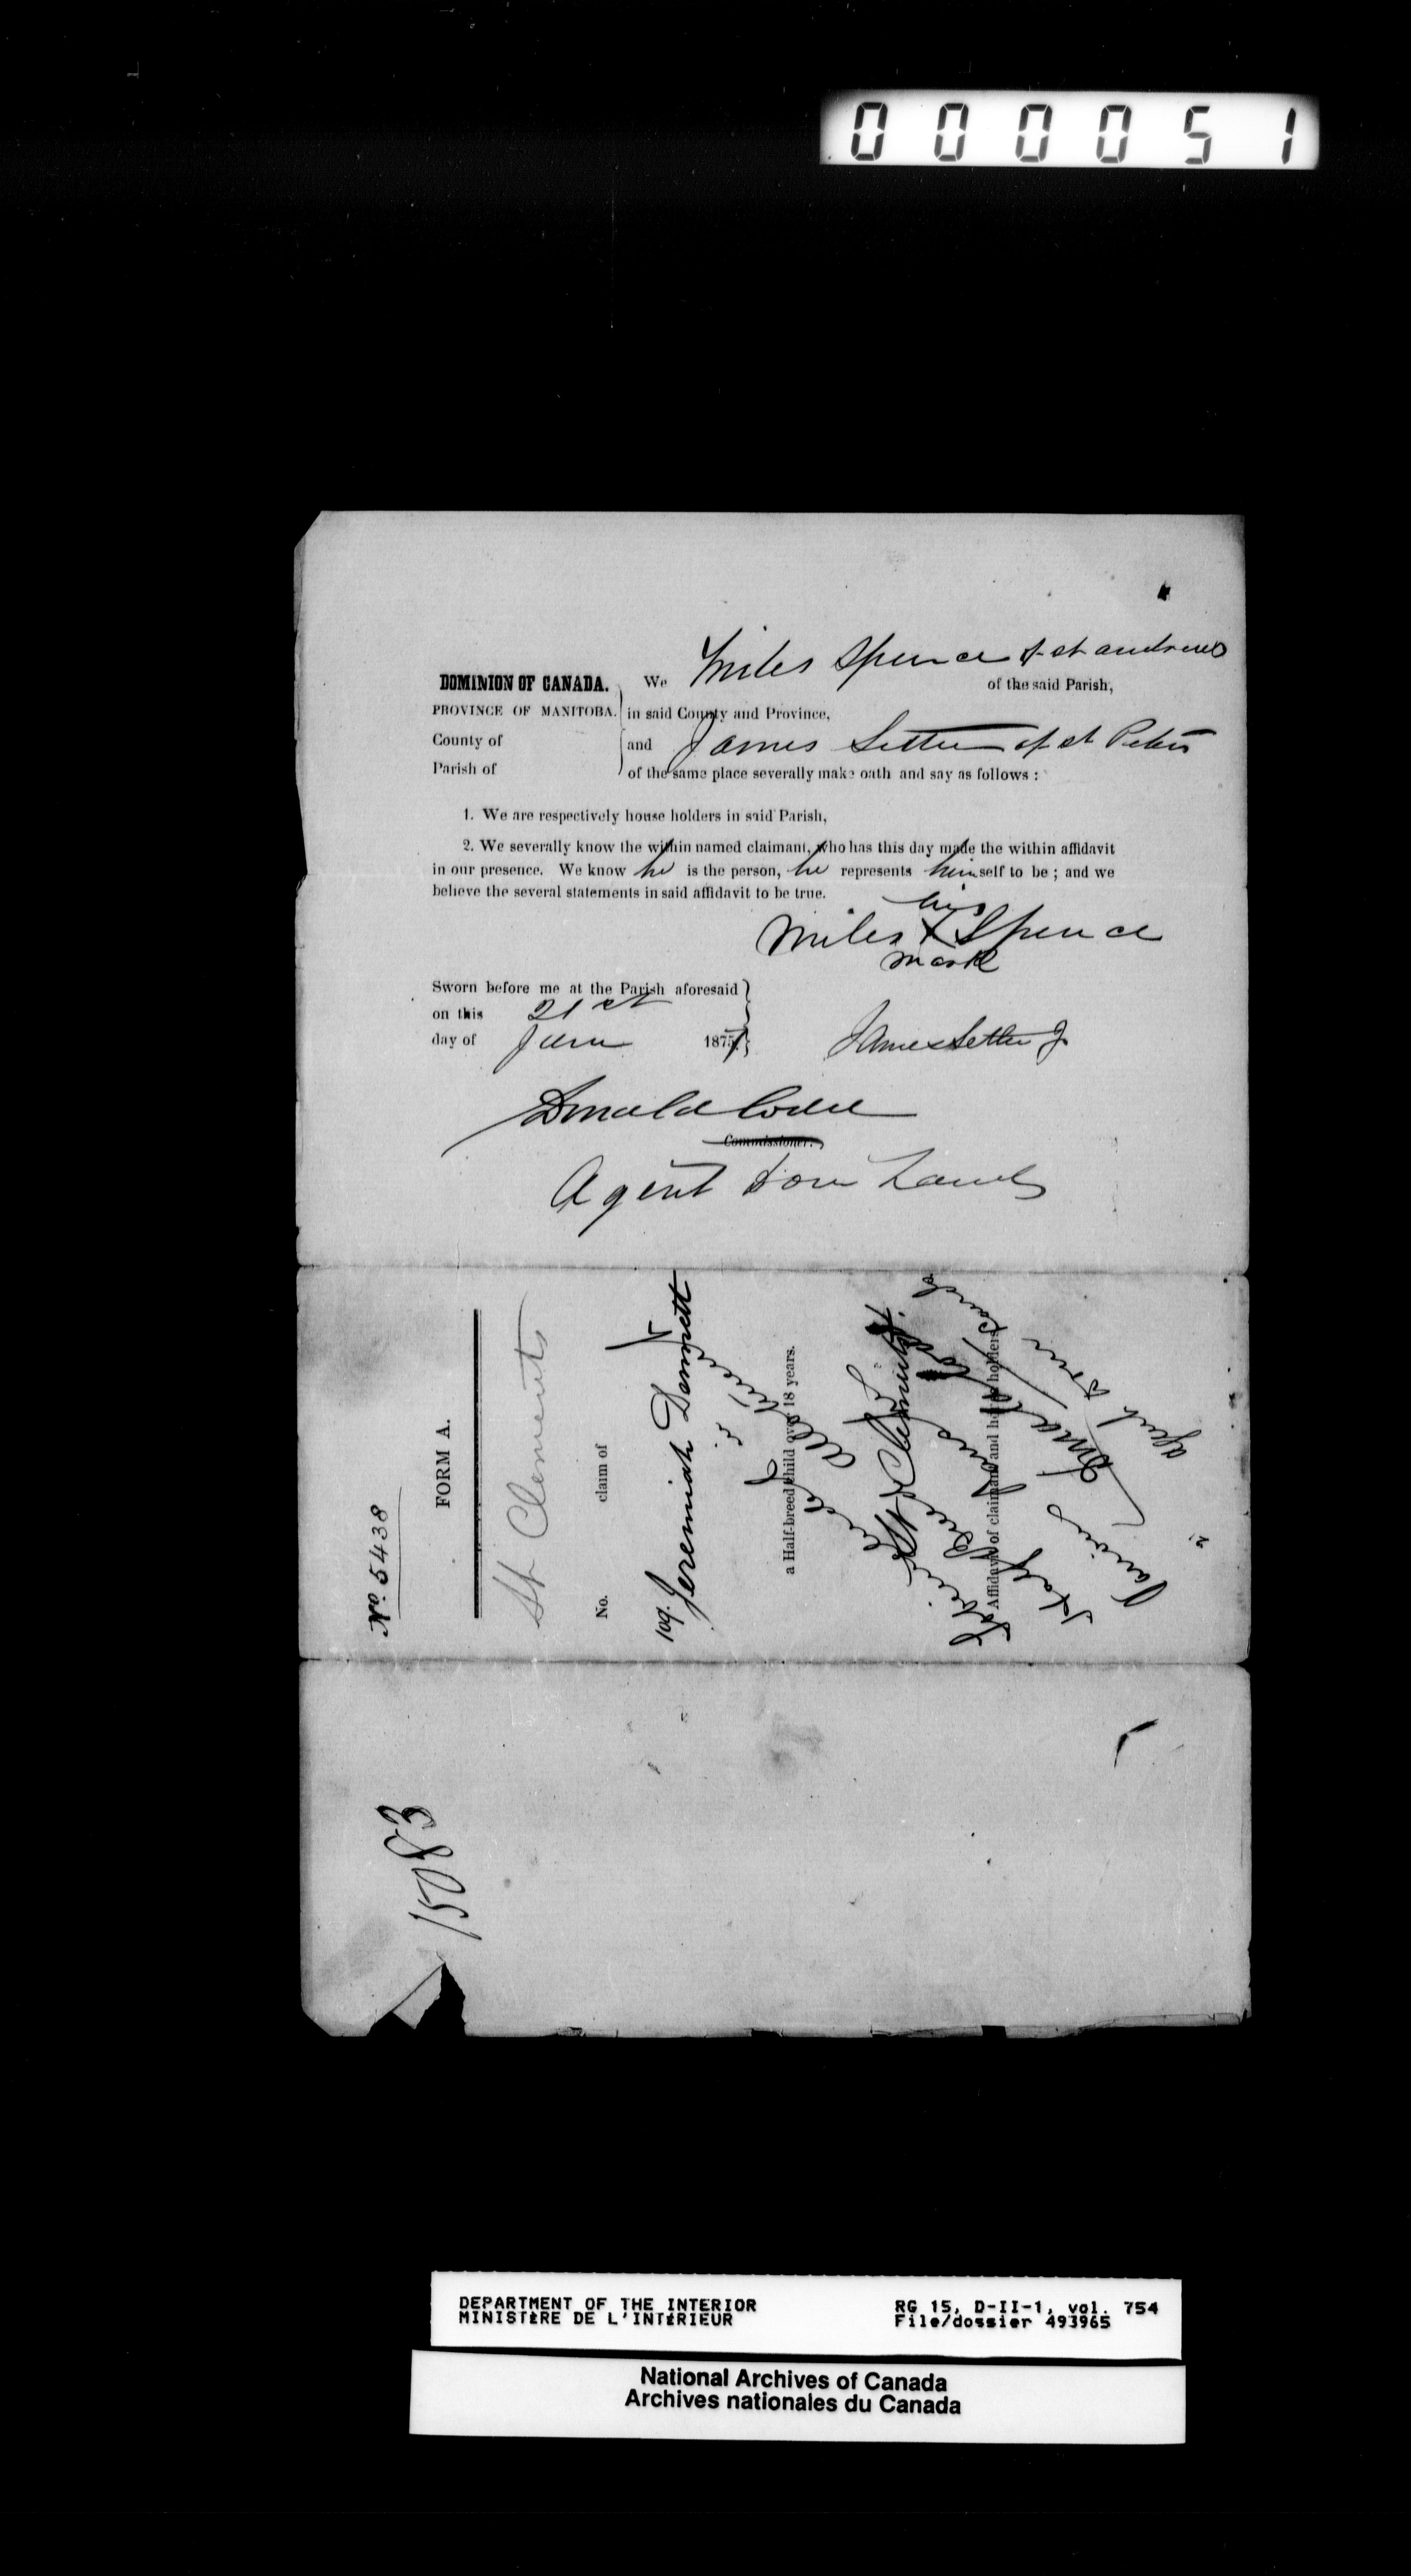 000051
Miles Spence of st andrews
DOMINION OF CANADA. We of the said Parish,
PROVINCE OF MANITOBA. in said County and Province,
County of and James Setter of st Peters
Parish of of the same place severally make oath and say as follows :
1. We are respectively house holders in said Parish,
2. We severally know the within named claimant, who has this day made the within affidavit
in our presence. We know he is the person, he represents himself to be ; and we
believe the several statements in said affidavit to be true.
his
Miles X Spence
mark
Sworn before me at the Parish aforesaid
on this 21st
day of June 187
James Setter Jr
Donald Codd
Commissioner.
Agent Dom Lands
No. 5438
FORM A.
St Clements
No. claim of
109. Jeremiah Dennett
a Half-breed child over 18 years.
all
St Clements
Half Breed
Affidavit of claimant and house holders
Agent Dom Lands
15083
DEPARTMENT OF THE INTERIOR
MINISTÈRE DE L'INTÉRIEUR
RG 15, D-II-1, vol. 754
File/dossier 493965
National Archives of Canada
Archives nationales du Canada